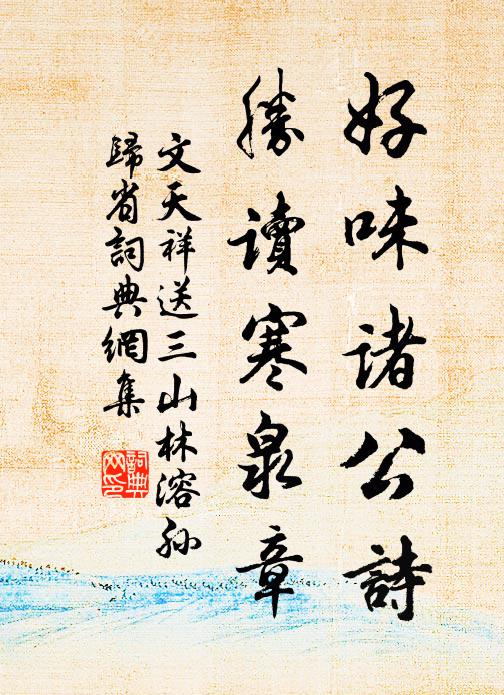 好味諸公詩
勝讀寒泉章
文天祥送三山林溶孫
歸省詞典網集
詞典网印